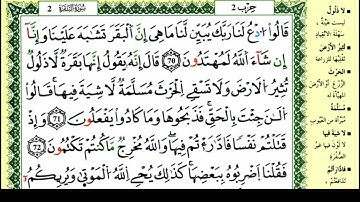 2 سورة البقرة حزب 2
قَالُوا۟ ٱدْعُ لَنَا رَبَّكَ يُبَيِّن لَّنَا مَا هِيَ إِنَّ ٱلْبَقَرَ تَشَٰبَهَ عَلَيْنَا وَإِنَّآ
إِن شَآءَ ٱللَّهُ لَمُهْتَدُونَ 70 قَالَ إِنَّهُۥ يَقُولُ إِنَّهَا بَقَرَةٌ لَّا ذَلُولٌ
تُثِيرُ ٱلْأَرْضَ وَلَا تَسْقِى ٱلْحَرْثَ مُسَلَّمَةٌ لَّا شِيَةَ فِيهَا قَالُوا۟
ٱلْـَٰٔنَ جِئْتَ بِٱلْحَقِّ فَذَبَحُوهَا وَمَا كَادُوا۟ يَفْعَلُونَ 71 وَإِذْ
قَتَلْتُمْ نَفْسًا فَٱدَّٰرَْٰٔتُمْ فِيهَا وَٱللَّهُ مُخْرِجٌ مَّا كُنتُمْ تَكْتُمُونَ 72
فَقُلْنَا ٱضْرِبُوهُ بِبَعْضِهَا كَذَٰلِكَ يُحْىِ ٱللَّهُ ٱلْمَوْتَىٰ وَيُرِيكُمْ
لا ذلول
تثير الأرض
الحرث
مسلمة
لا شية فيها
فادارأتم